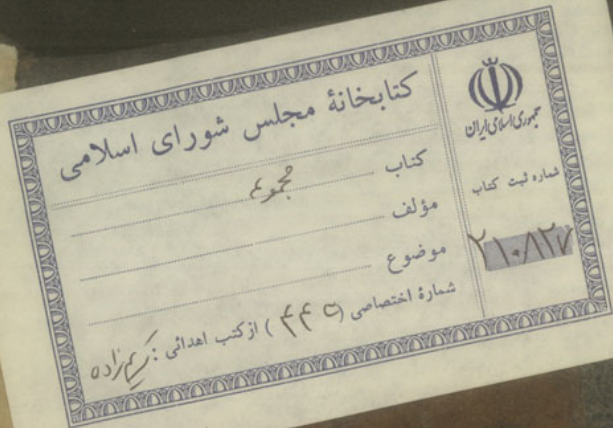 کتابخانهٔ مجلس شورای اسلامی
کتاب مجموعه
مؤلف
موضوع
شمارهٔ اختصاصی ( ) از کتب اهدائی : کریم‌زاده
جمهوری اسلامی ایران
شماره ثبت کتاب
۲۱۰۸۲۷